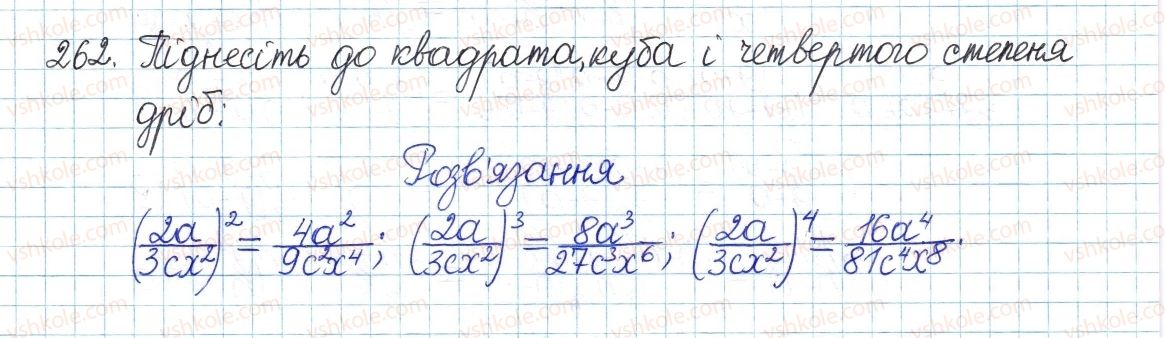 262. Піднесіть до квадрата, куба і четвертого степеня
дріб:
Розв'язання
(2a/3cx²)² = 4a²/9c²x⁴; (2a/3cx²)³ = 8a³/27c³x⁶; (2a/3cx²)⁴ = 16a⁴/81c⁴x⁸.